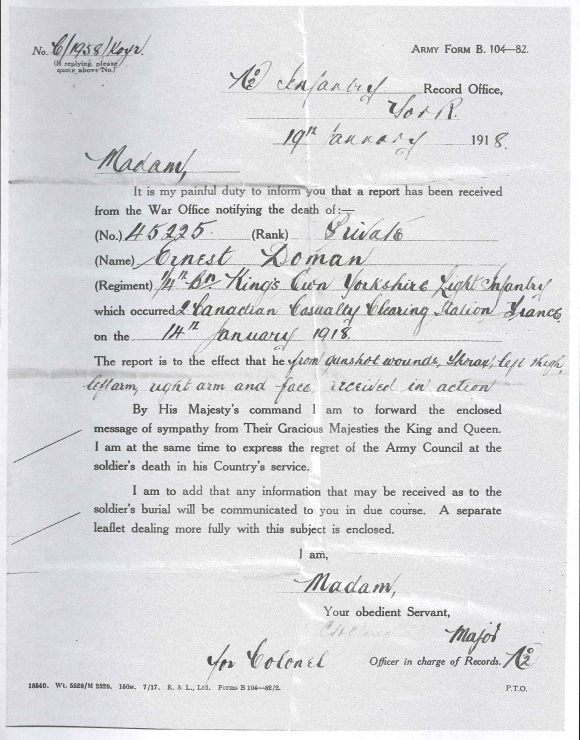 No. C/1958/Koyr.
(If replying, please
quote above No.)
ARMY FORM B. 104—82.
No 2 Infantry Record Office,
York.
19th January 1918.
Madam,
It is my painful duty to inform you that a report has been received
from the War Office notifying the death of:—
(No.) 45225 (Rank) Private
(Name) Ernest Doman
(Regiment) 1/4th Bn King's Own Yorkshire Light Infantry
which occurred 2 Canadian Casualty Clearing Station, France
on the 14th January 1918.
The report is to the effect that he from gunshot wounds, Thorax, left thigh,
left arm, right arm and face received in action
By His Majesty's command I am to forward the enclosed
message of sympathy from Their Gracious Majesties the King and Queen.
I am at the same time to express the regret of the Army Council at the
soldier's death in his Country's service.
I am to add that any information that may be received as to the
soldier's burial will be communicated to you in due course. A separate
leaflet dealing more fully with this subject is enclosed.
I am,
Madam,
Your obedient Servant,
Major
for Colonel Officer in charge of Records. No 2
18540. Wt. 5529/M 2529. 150M. 7/17. R. & L., Ltd. Forms B104—82/2.
P.T.O.